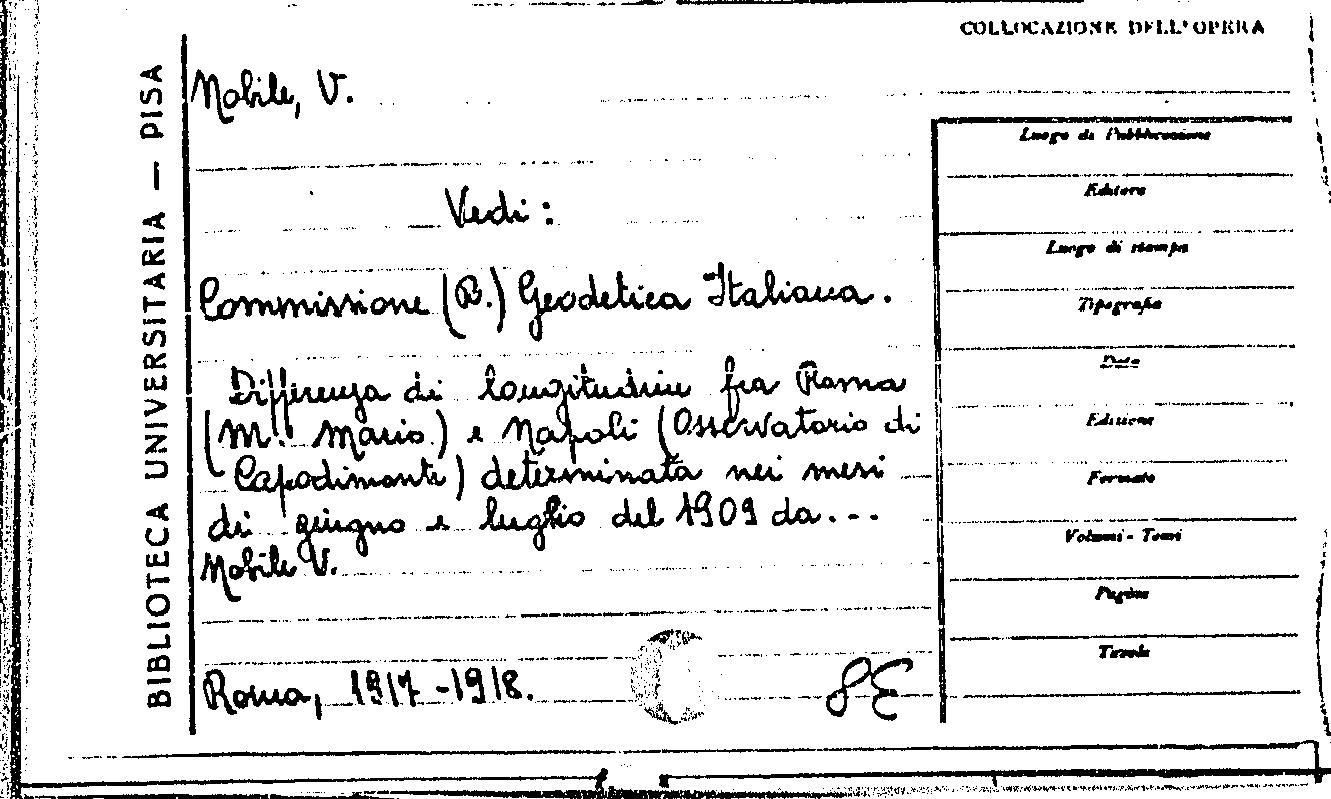 COLLOCAZIONE DELL'OPERA
BIBLIOTECA UNIVERSITARIA — PISA
Nobile, V.
Vedi:
Commissione (R.) Geodetica Italiana.
Differenza di longitudine fra Roma
(M.te Mario) e Napoli (Osservatorio di
Capodimonte) determinata nei mesi
di giugno e luglio del 1909 da...
Nobile V.
Roma, 1917-1918.
Luogo di Pubblicazione
Editore
Luogo di stampa
Tipografia
Data
Edizione
Formato
Volumi - Tomi
Pagine
Tavole